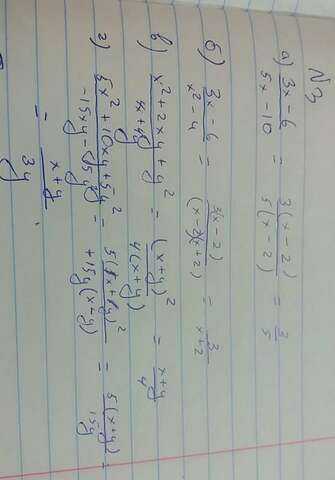 N3
а) 3x-6 / 5x-10 = 3(x-2) / 5(x-2) = 3/5
б) 3x-6 / x²-4 = 3(x-2) / (x-2)(x+2) = 3 / x+2
в) x²+2xy+y² / 4x+4y = (x+y)² / 4(x+y) = x+y / 4
г) 5x²+10xy+5y² / -15xy-15y² = 5(x+y)² / +15y(x+y) = 5(x+y) / 15y =
= x+y / 3y